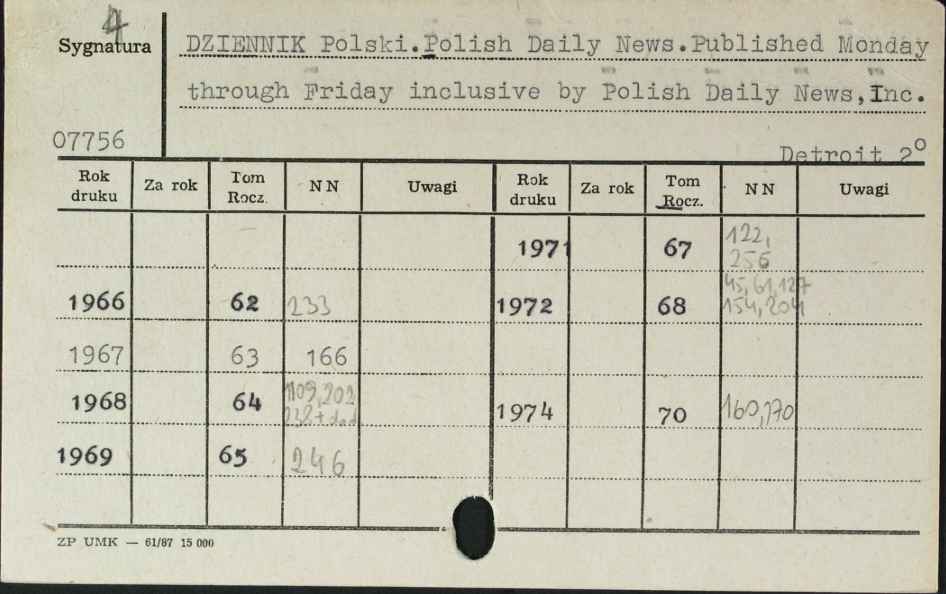 4
Sygnatura
DZIENNIK Polski.Polish Daily News.Published Monday
through Friday inclusive by Polish Daily News,Inc.
07756
Detroit 2°
Rok druku Za rok Tom Rocz. NN Uwagi Rok druku Za rok Tom Rocz. NN Uwagi
1971 67 122, 256
1966 62 233 1972 68 45,61,127 154,204
1967 63 166
1968 64 109,202 238+dod 1974 70 160,170
1969 65 246
ZP UMK — 61/87 15 000